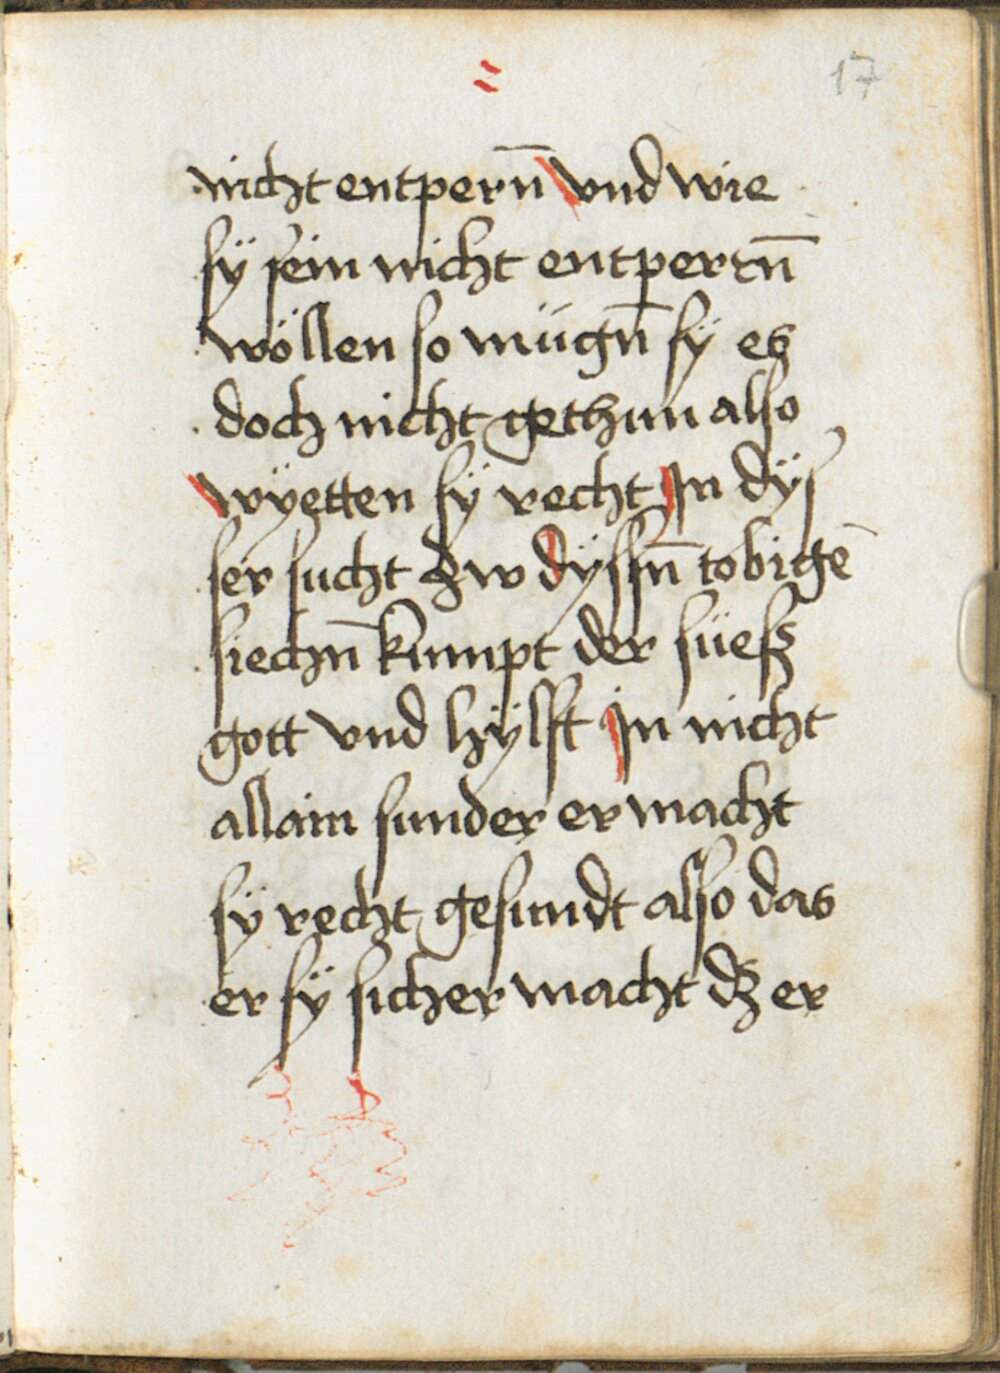 17
nicht entpern̄ vnd wie
sÿ sein nicht entpern̄
wöllen so mügn̄ sÿ es
doch nicht gethun also
wÿetten sÿ recht In dÿſ
ser sucht zw dÿssn̄ tobigē
siechn̄ kumpt der süesz
gott vnd hÿlfft In nicht
allain sunder er macht
sÿ recht gesundt also das
er sÿ sicher macht dz er